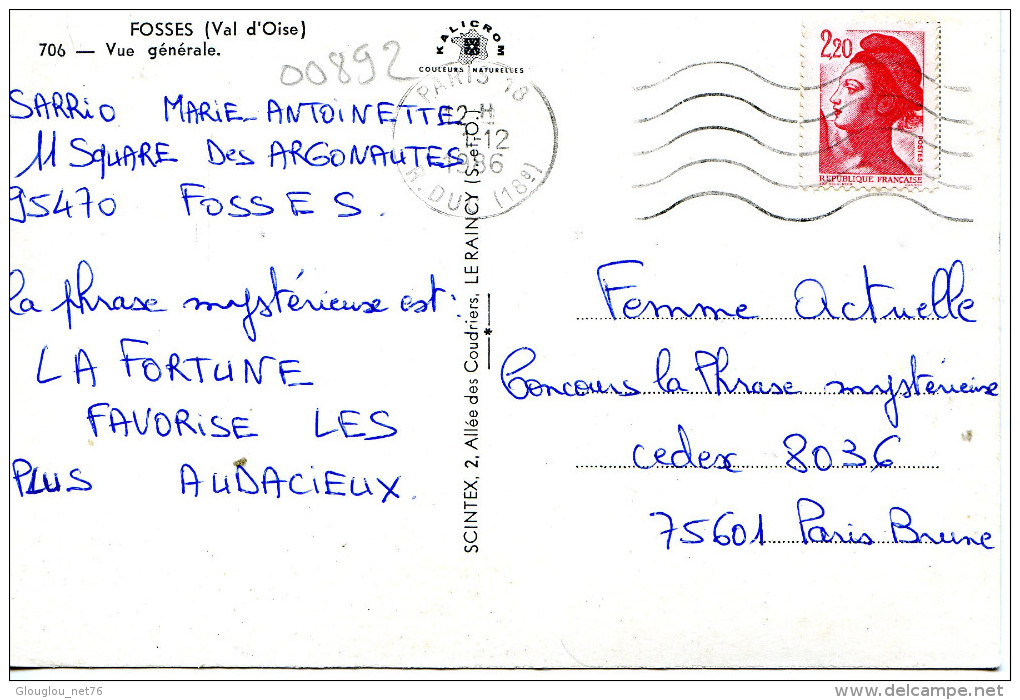 FOSSES (Val d'Oise)
706 — Vue générale.
00892
KALICROM
COULEURS NATURELLES
PARIS 18
12 H
1-12
1986
R. DUC (18e)
2,20
POSTES
RÉPUBLIQUE FRANÇAISE
SARRIO MARIE-ANTOINETTE
11 SQUARE Des ARGONAUTES
95470 FOSSES.
La phrase mystérieuse est :
LA FORTUNE
FAVORISE LES
PLUS AUDACIEUX.
SCINTEX, 2, Allée des Coudriers, LE RAINCY (S.-et-O.)
Femme Actuelle
Concours la Phrase mystérieuse
cedex 8036
75601 Paris Brune
Glouglou_net76
www.delcampe.net